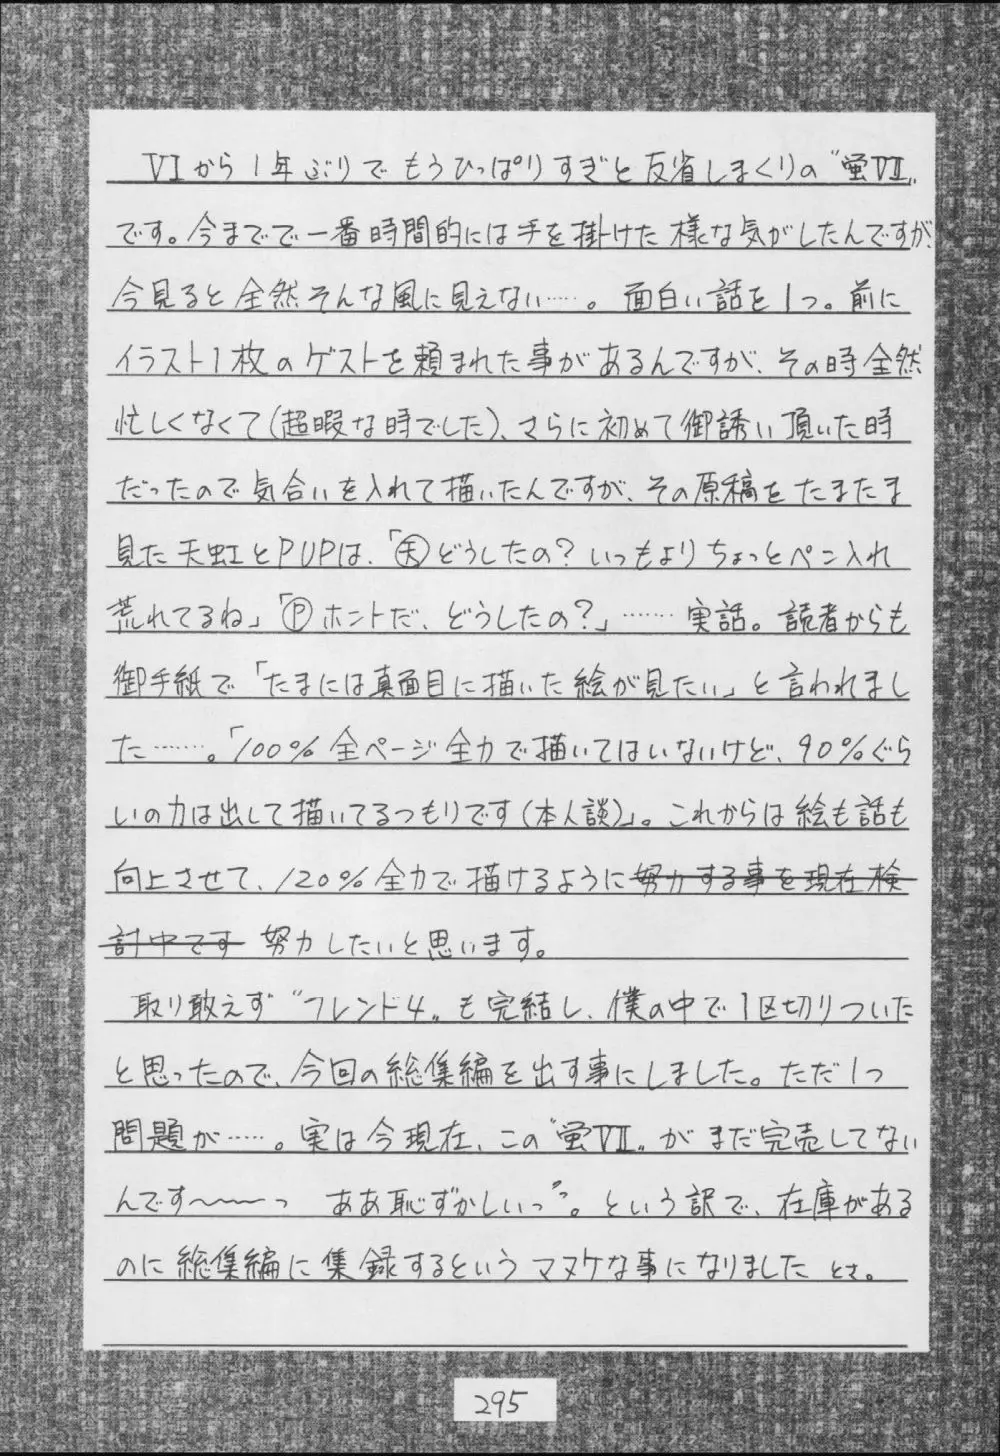 VIから1年ぶりでもうひっぱりすぎと反省しまくりの〝蛍VII〟
です。今までで一番時間的には手を掛けた様な気がしたんですが、
今見ると全然そんな風に見えない……。面白い話を1つ。前に
イラスト1枚のゲストを頼まれた事があるんですが、その時全然
忙しくなくて(超暇な時でした)、さらに初めて御誘い頂いた時
だったので気合いを入れて描いたんですが、その原稿をたまたま
見た天虹とPUPは、「㊝どうしたの?いつもよりちょっとペン入れ
荒れてるね」「Ⓟホントだ、どうしたの?」……実話。読者からも
御手紙で「たまには真面目に描いた絵が見たい」と言われまし
た……。「100%全ページ全力で描いてはいないけど、90%ぐら
いの力は出して描いてるつもりです(本人談)」。これからは絵も話も
向上させて、120%全力で描けるように努力する事を現在検
討中です 努力したいと思います。
取り敢えず〝フレンド4〟も完結し、僕の中で1区切りついた
と思ったので、今回の総集編を出す事にしました。ただ1つ
問題が……。実は今現在、この〝蛍VII〟がまだ完売してない
んです〜〜〜っ ああ恥ずかしいっ。という訳で、在庫がある
のに総集編に集録するというマヌケな事になりました とさ。
295